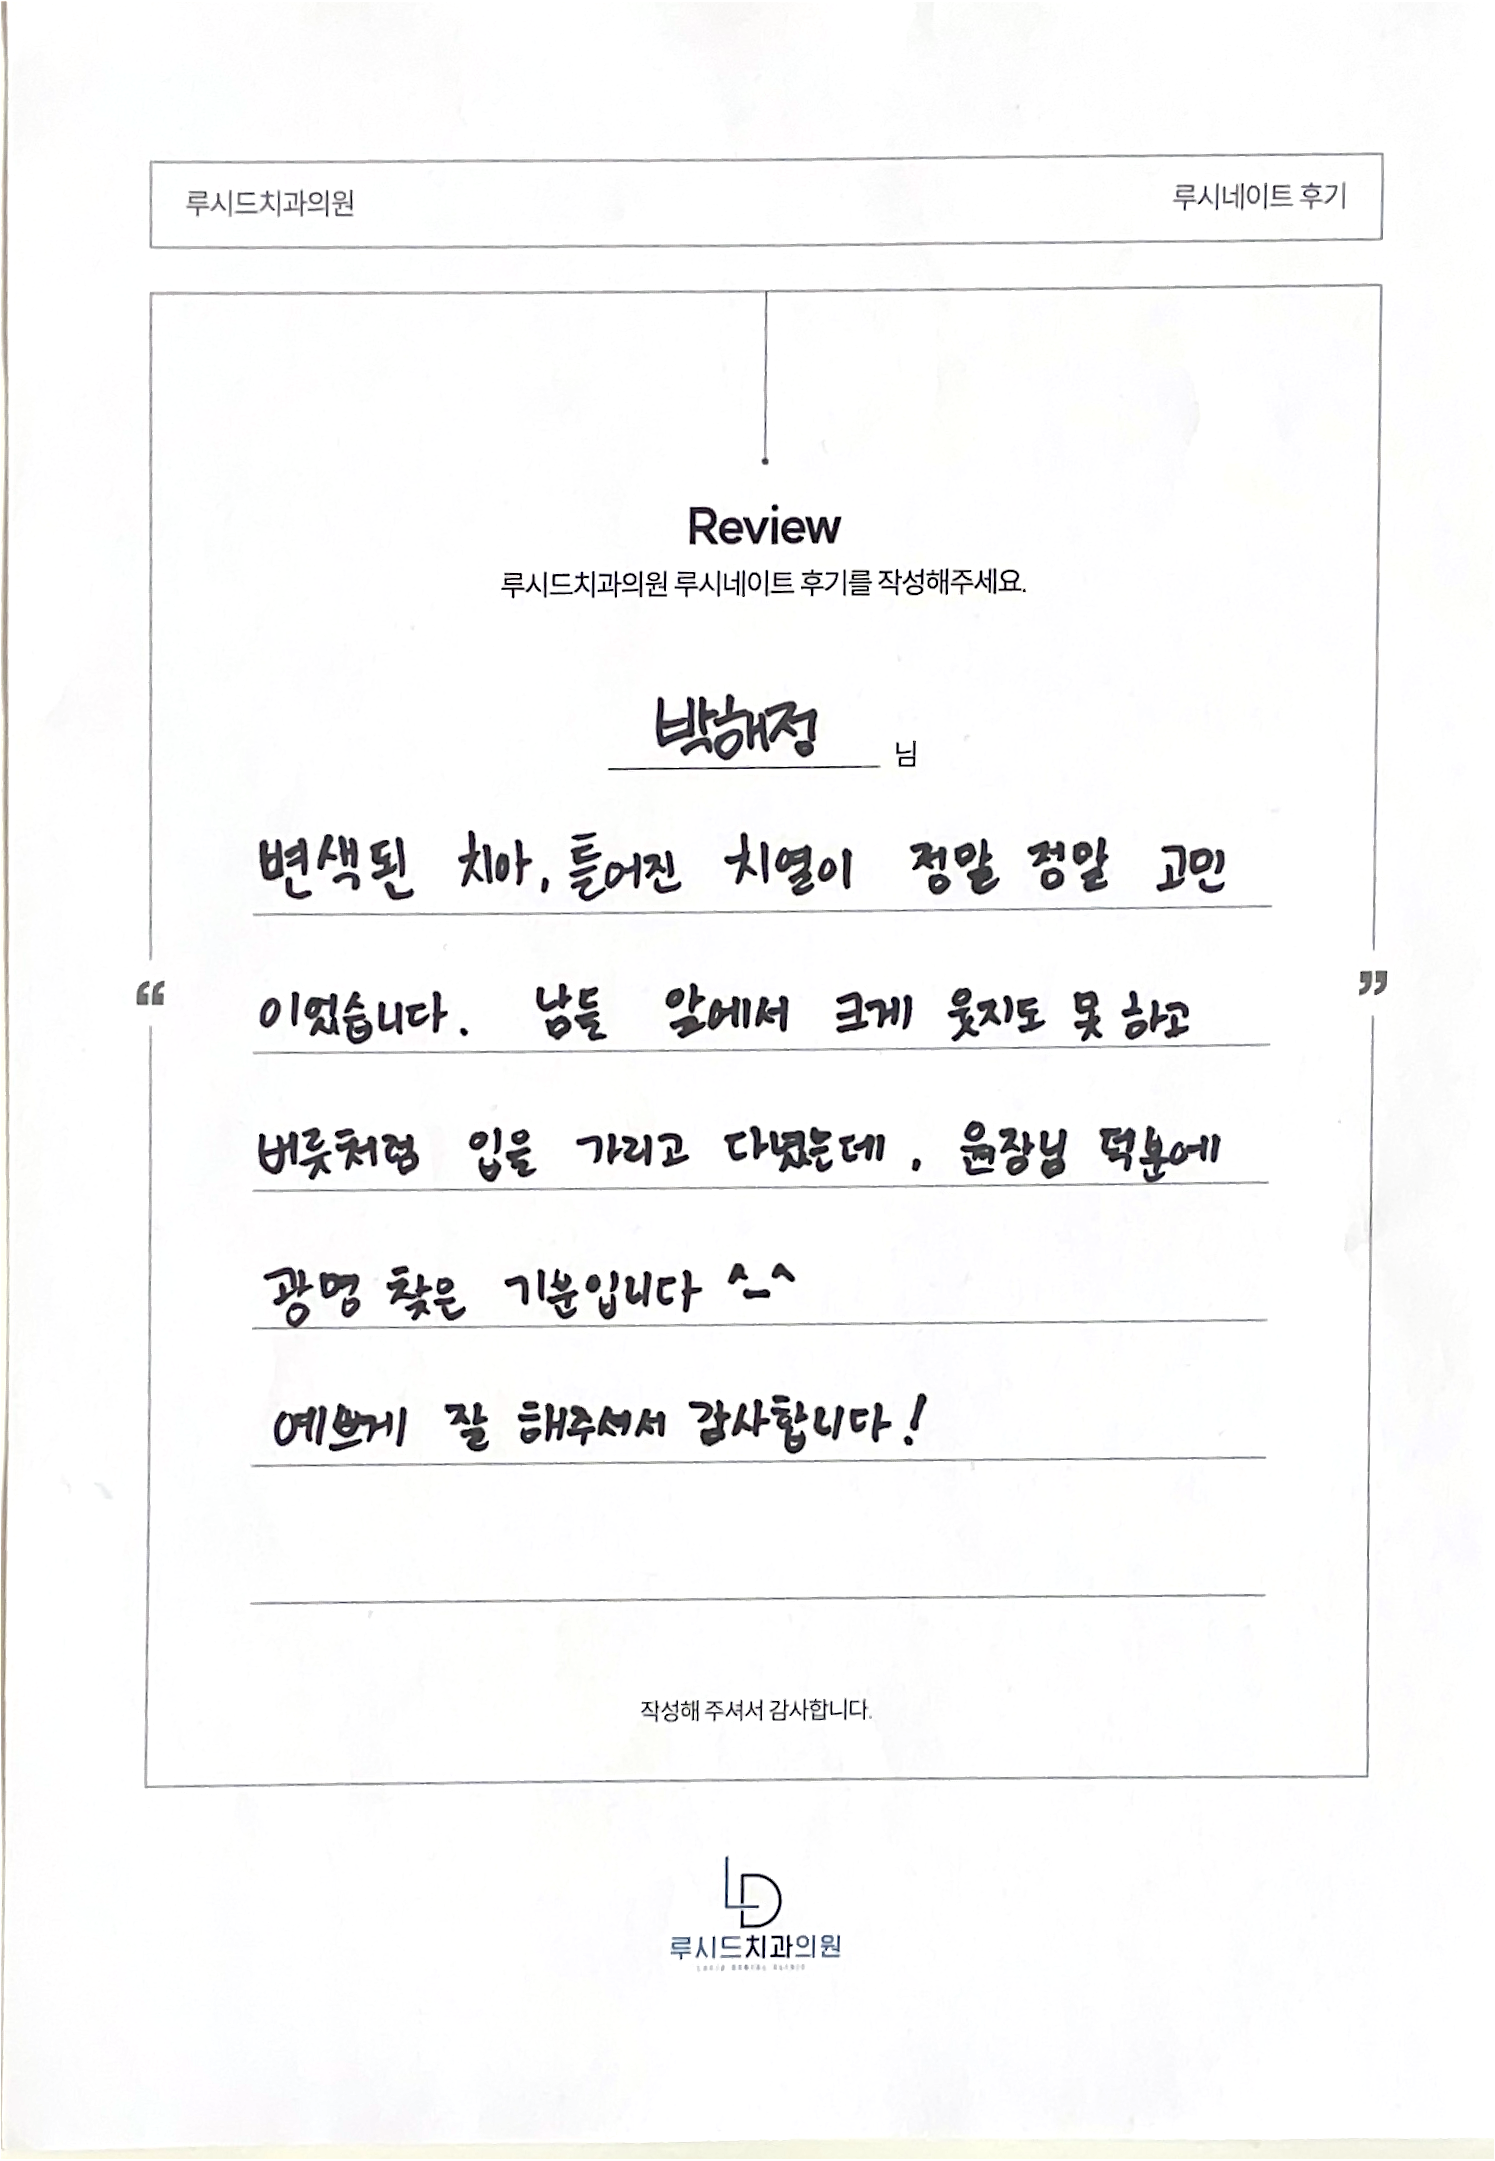 루시드치과의원
루시네이트 후기
Review
루시드치과의원 루시네이트 후기를 작성해주세요.
박해정 님
변색된 치아, 틀어진 치열이 정말 정말 고민
“ 이었습니다. 남들 앞에서 크게 웃지도 못 하고 ”
버릇처럼 입을 가리고 다녔는데, 원장님 덕분에
광명 찾은 기분입니다 ^-^
예쁘게 잘 해주셔서 감사합니다!
작성해 주셔서 감사합니다.
LD
루시드치과의원